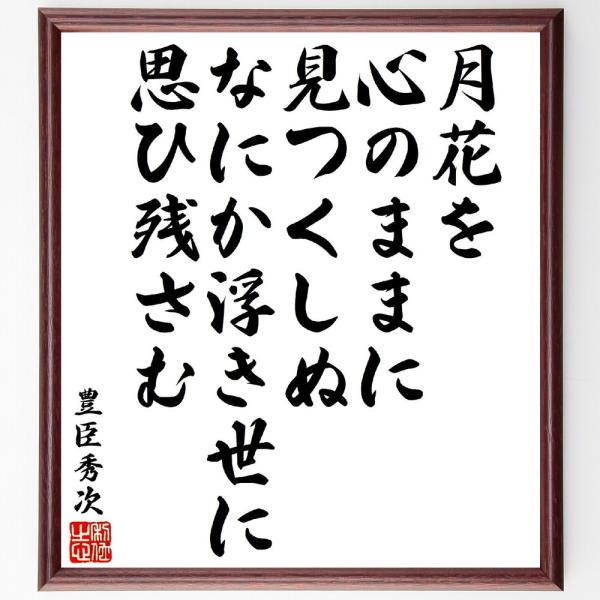 月花を
心のままに
見つくしぬ
なにか浮き世に
思ひ残さむ
豊臣秀次